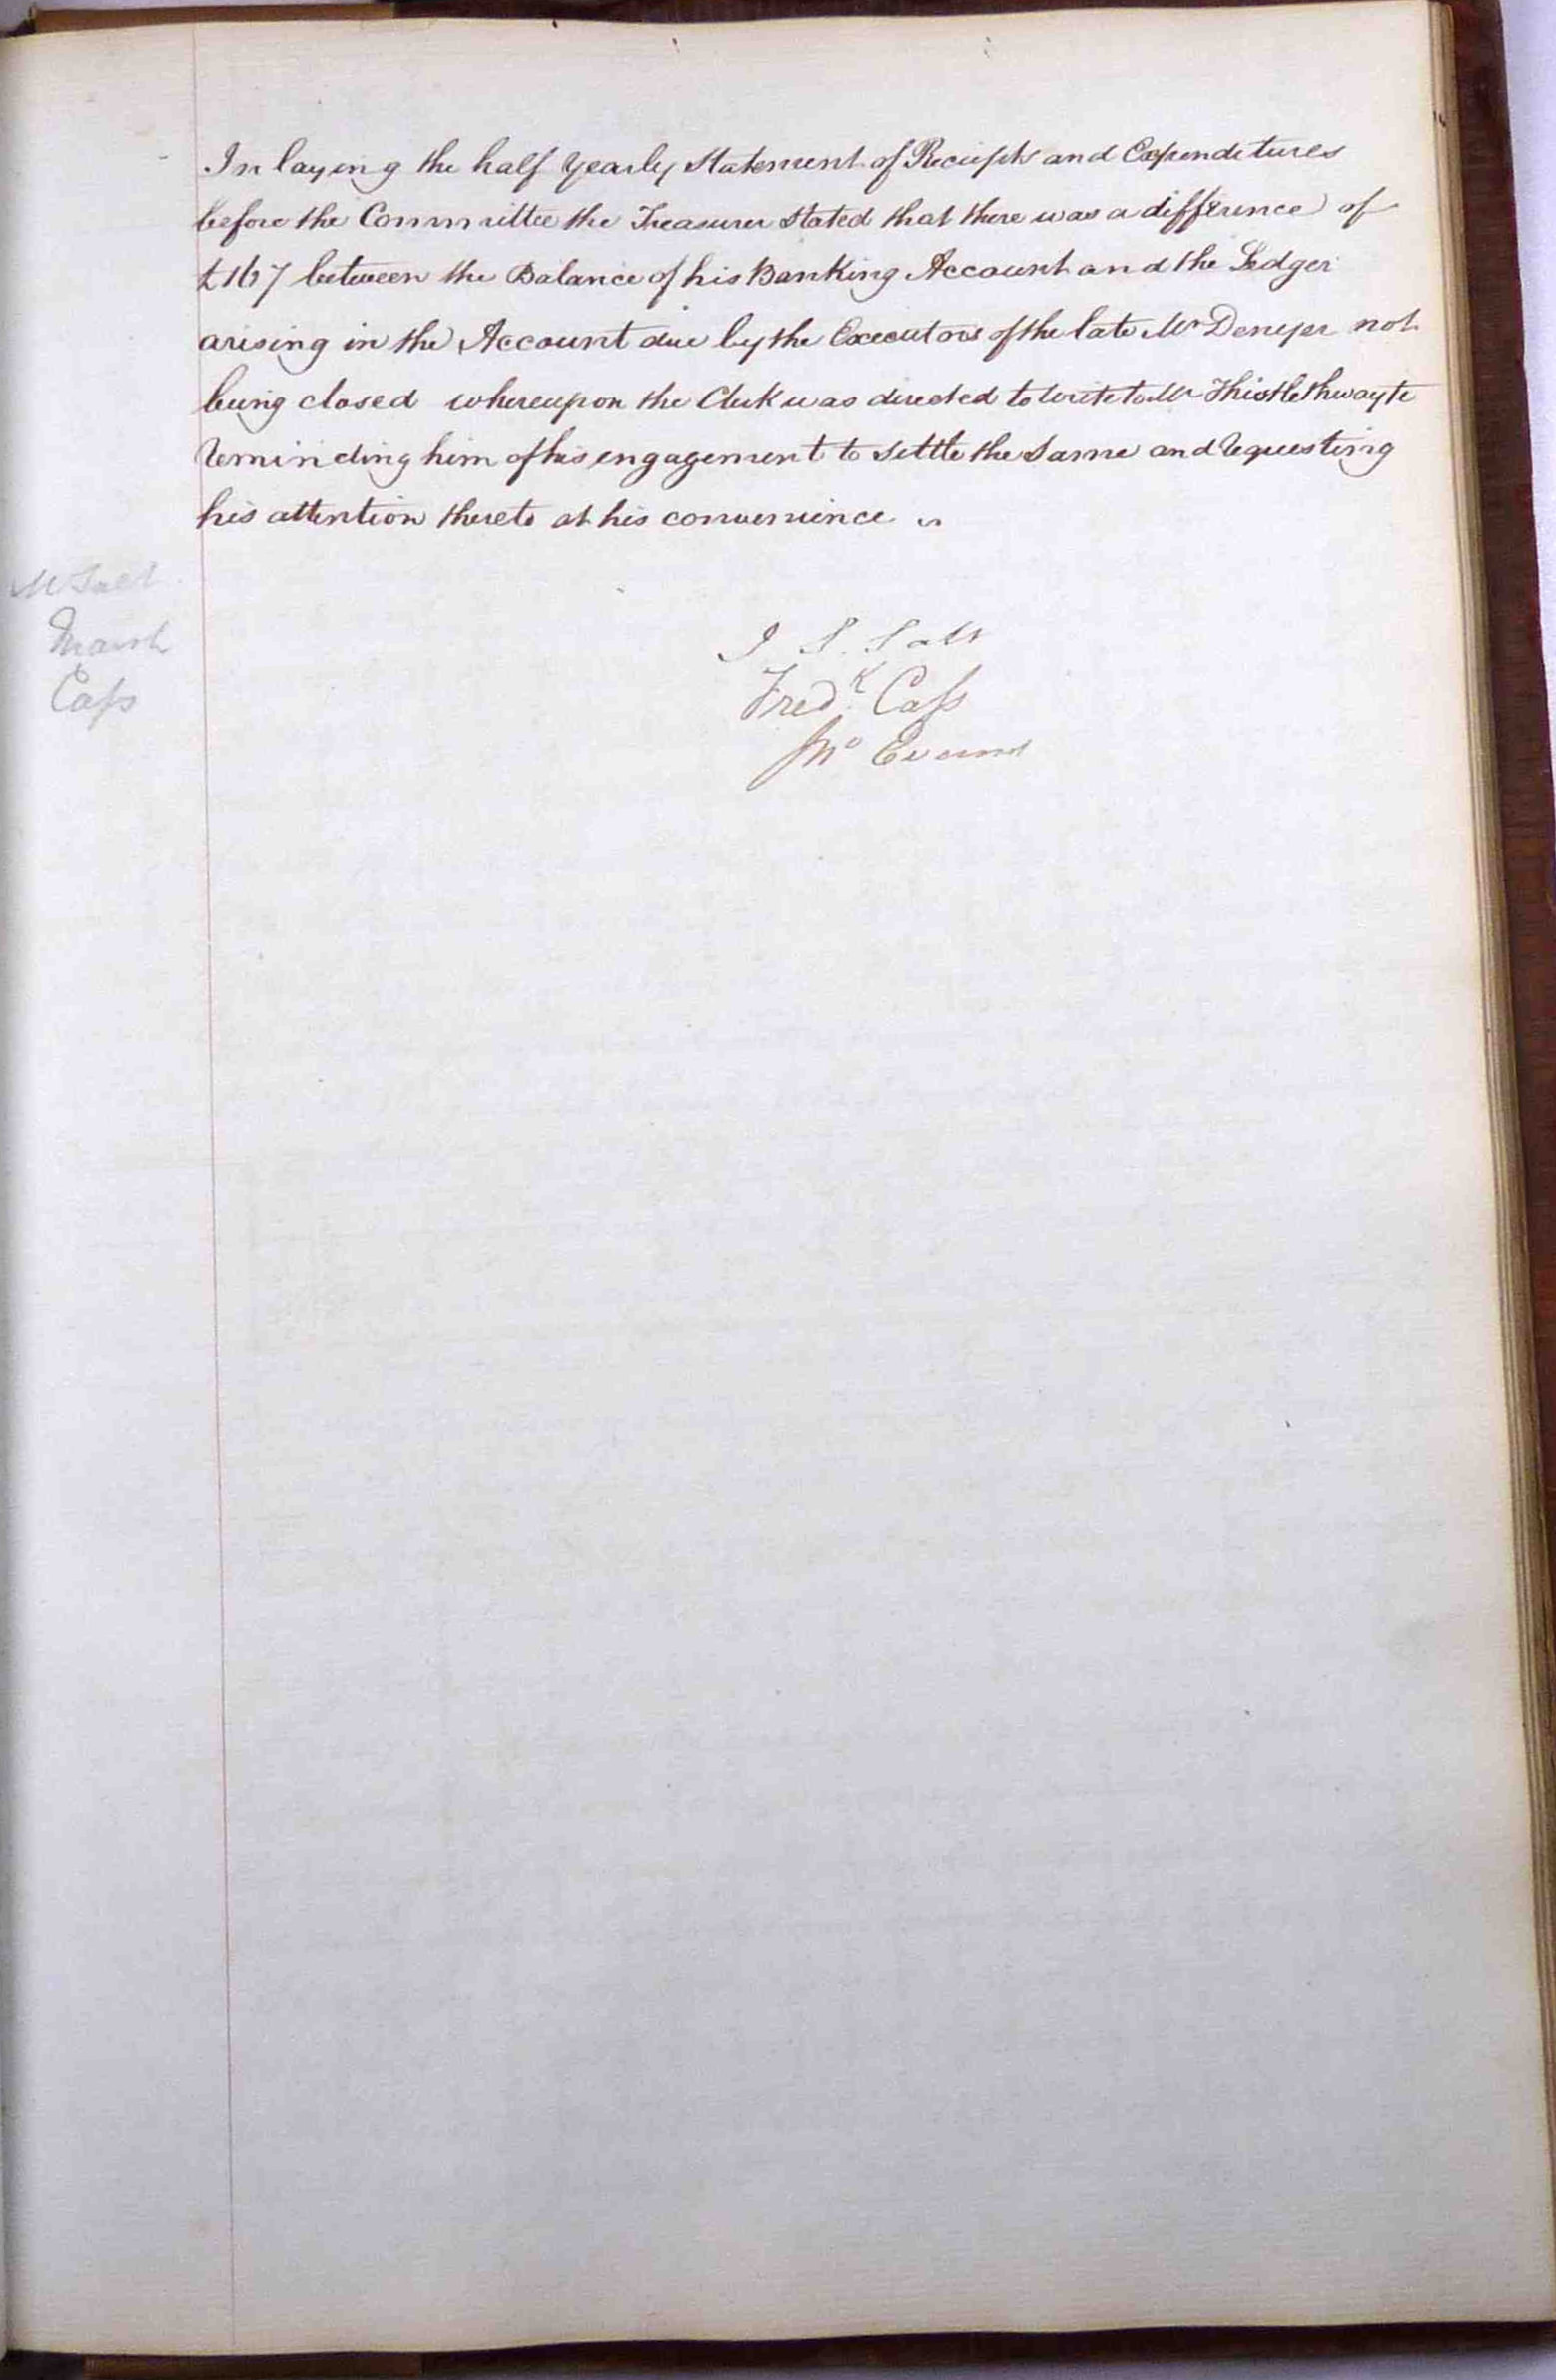 In laying the half Yearly Statement of Reciepts and Expenditures
before the Committee the Treasurer Stated that there was a difference of
£167 between the Balance of his Banking Account and the Ledger
arising in the Account due by the Executors of the late Mr Denyer not
being closed whereupon the Clerk was directed to write to Mr Thistlethwayte
reminding him of his engagement to Settle the Same and requesting
his attention thereto at his convenience
Mr Salt
Marsh
Cass
J S. Salt
Fredk Cass
Jno Evans